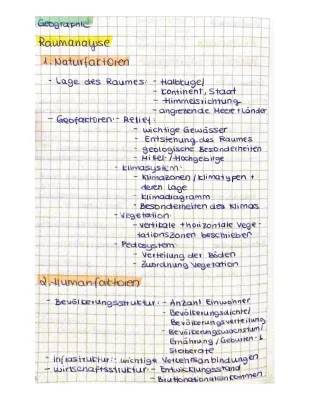 Geographie
Raumanalyse
1. Naturfaktoren
- Lage des Raumes: - Halbkugel
- Kontinent, Staat
- Himmelsrichtung
- angrenzende Meere + Länder
- Geofaktoren: - Relief:
- wichtige Gewässer
- Entstehung des Raumes
- geologische Besonderheiten
- Mittel-/Hochgebirge
- Klimasystem:
- Klimazonen/Klimatypen +
deren Lage
- Klimadiagramm
- Besonderheiten des Klimas
- Vegetation:
- vertikale + horizontale Vege-
tationszonen beschreiben
- Pedosystem:
- Verteilung der Böden
- Zuordnung Vegetation
2. Humanfaktoren
- Bevölkerungsstruktur: - Anzahl Einwohner
- Bevölkerungsdichte/
Bevölkerungsverteilung
- Bevölkerungswachstum/
Ernährung/Geburten- &
Sterberate
- Infrastruktur: wichtige Verkehrsanbindungen
- Wirtschaftsstruktur: - Entwicklungsstand
- Bruttonationaleinkommen